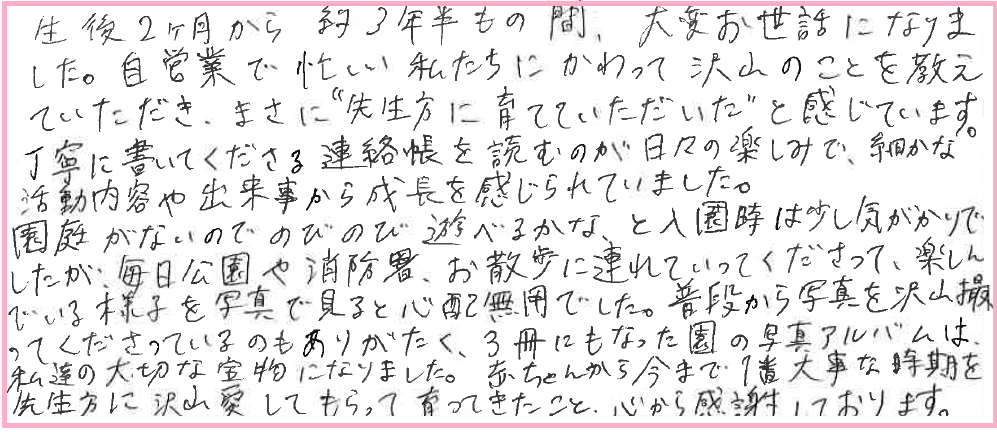 生後2ヶ月から 約3年半もの間、大変お世話になりま
した。自営業で忙しい私たちにかわって沢山のことを教え
ていただき、まさに“先生方に育てていただいた”と感じています。
丁寧に書いてくださる連絡帳を読むのが日々の楽しみで、細かな
活動内容や出来事から成長を感じられていました。
園庭がないのでのびのび遊べるかな、と入園時は少し気がかりで
したが、毎日公園や消防署、お散歩に連れていってくださって、楽しん
でいる様子を写真で見ると心配無用でした。普段から写真を沢山撮
ってくださっているのもありがたく、3冊にもなった園の写真アルバムは、
私達の大切な宝物になりました。赤ちゃんから今まで1番大事な時期を
先生方に沢山愛してもらって育ってきたこと、心から感謝しております。